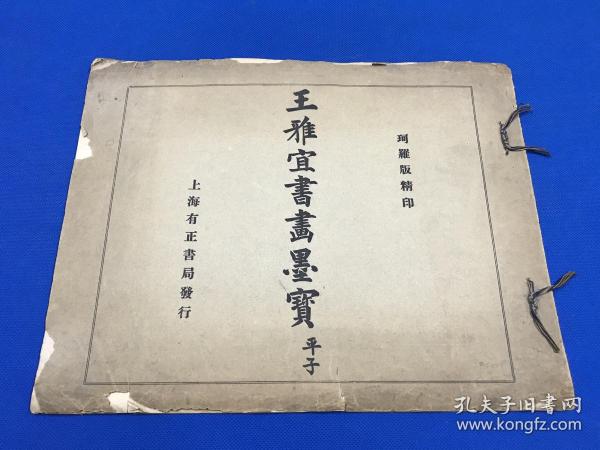 珂羅版精印
王雅宜書畫墨寶
平子
上海有正書局發行
孔夫子旧书网
www.kongfz.com